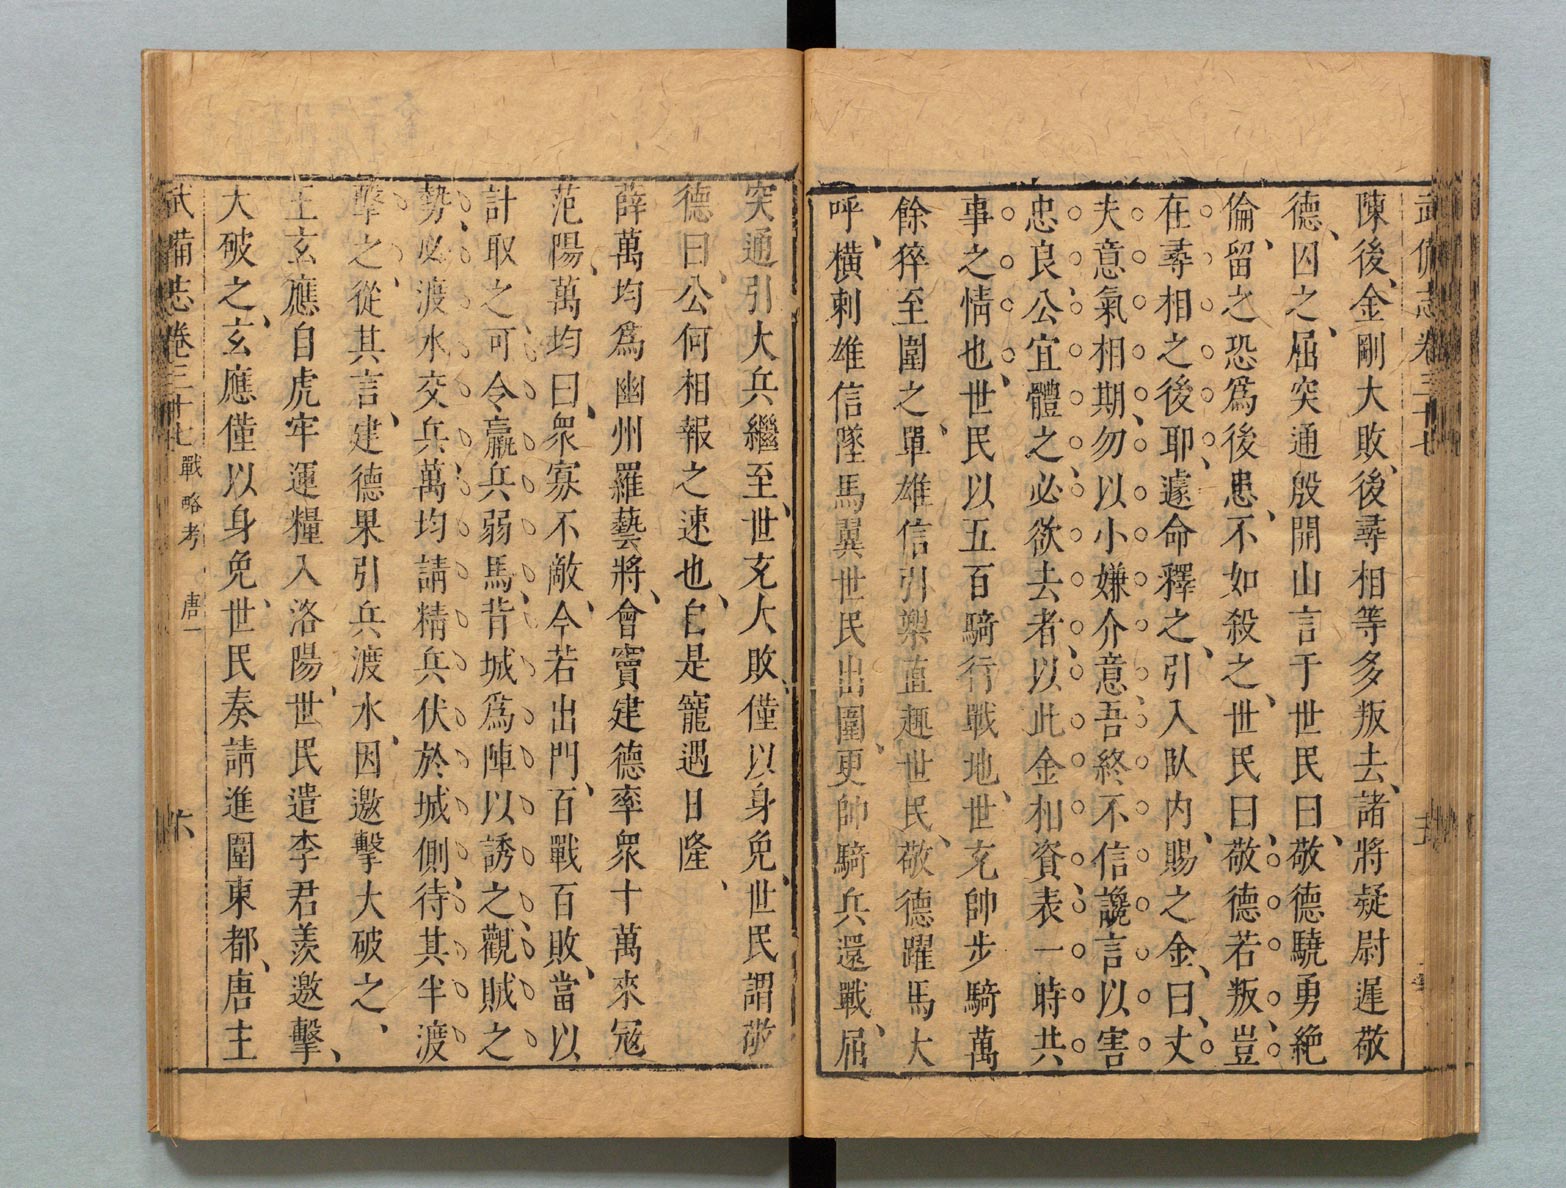 武備志卷三十七
陳後、金剛大敗、後尋相等多叛去、諸將疑尉遲敬
德、囚之、屈突通殷開山言于世民曰、敬德驍勇絶
倫、留之恐爲後患、不如殺之、世民曰、敬德若叛、豈
在尋相之後耶、遽命釋之、引入臥內、賜之金、曰、丈
夫意氣相期、勿以小嫌介意、吾終不信讒言以害
忠良、公宜體之、必欲去者、以此金相資、表一時共
事之情也、世民以五百騎行戰地、世充帥步騎萬
餘猝至圍之、單雄信引槊直趨世民、敬德躍馬大
呼、橫刺雄信墜馬翼世民出圍、更帥騎兵還戰、屈
突通引大兵繼至、世充大敗、僅以身免、世民謂敬
德曰、公何相報之速也、自是寵遇日隆、
薛萬均爲幽州羅藝將、會竇建德率衆十萬來寇
范陽、萬均曰、衆寡不敵、今若出門、百戰百敗、當以
計取之可、令羸兵弱馬、背城爲陣以誘之、觀賊之
勢、必渡水交兵、萬均請精兵伏於城側、待其半渡
擊之、從其言、建德果引兵渡水、因邀擊大破之、
王玄應自虎牢運糧入洛陽、世民遣李君羨邀擊、
大破之、玄應僅以身免、世民奏請進圍東都、唐主
武備志卷三十七 戰略考 唐一 六